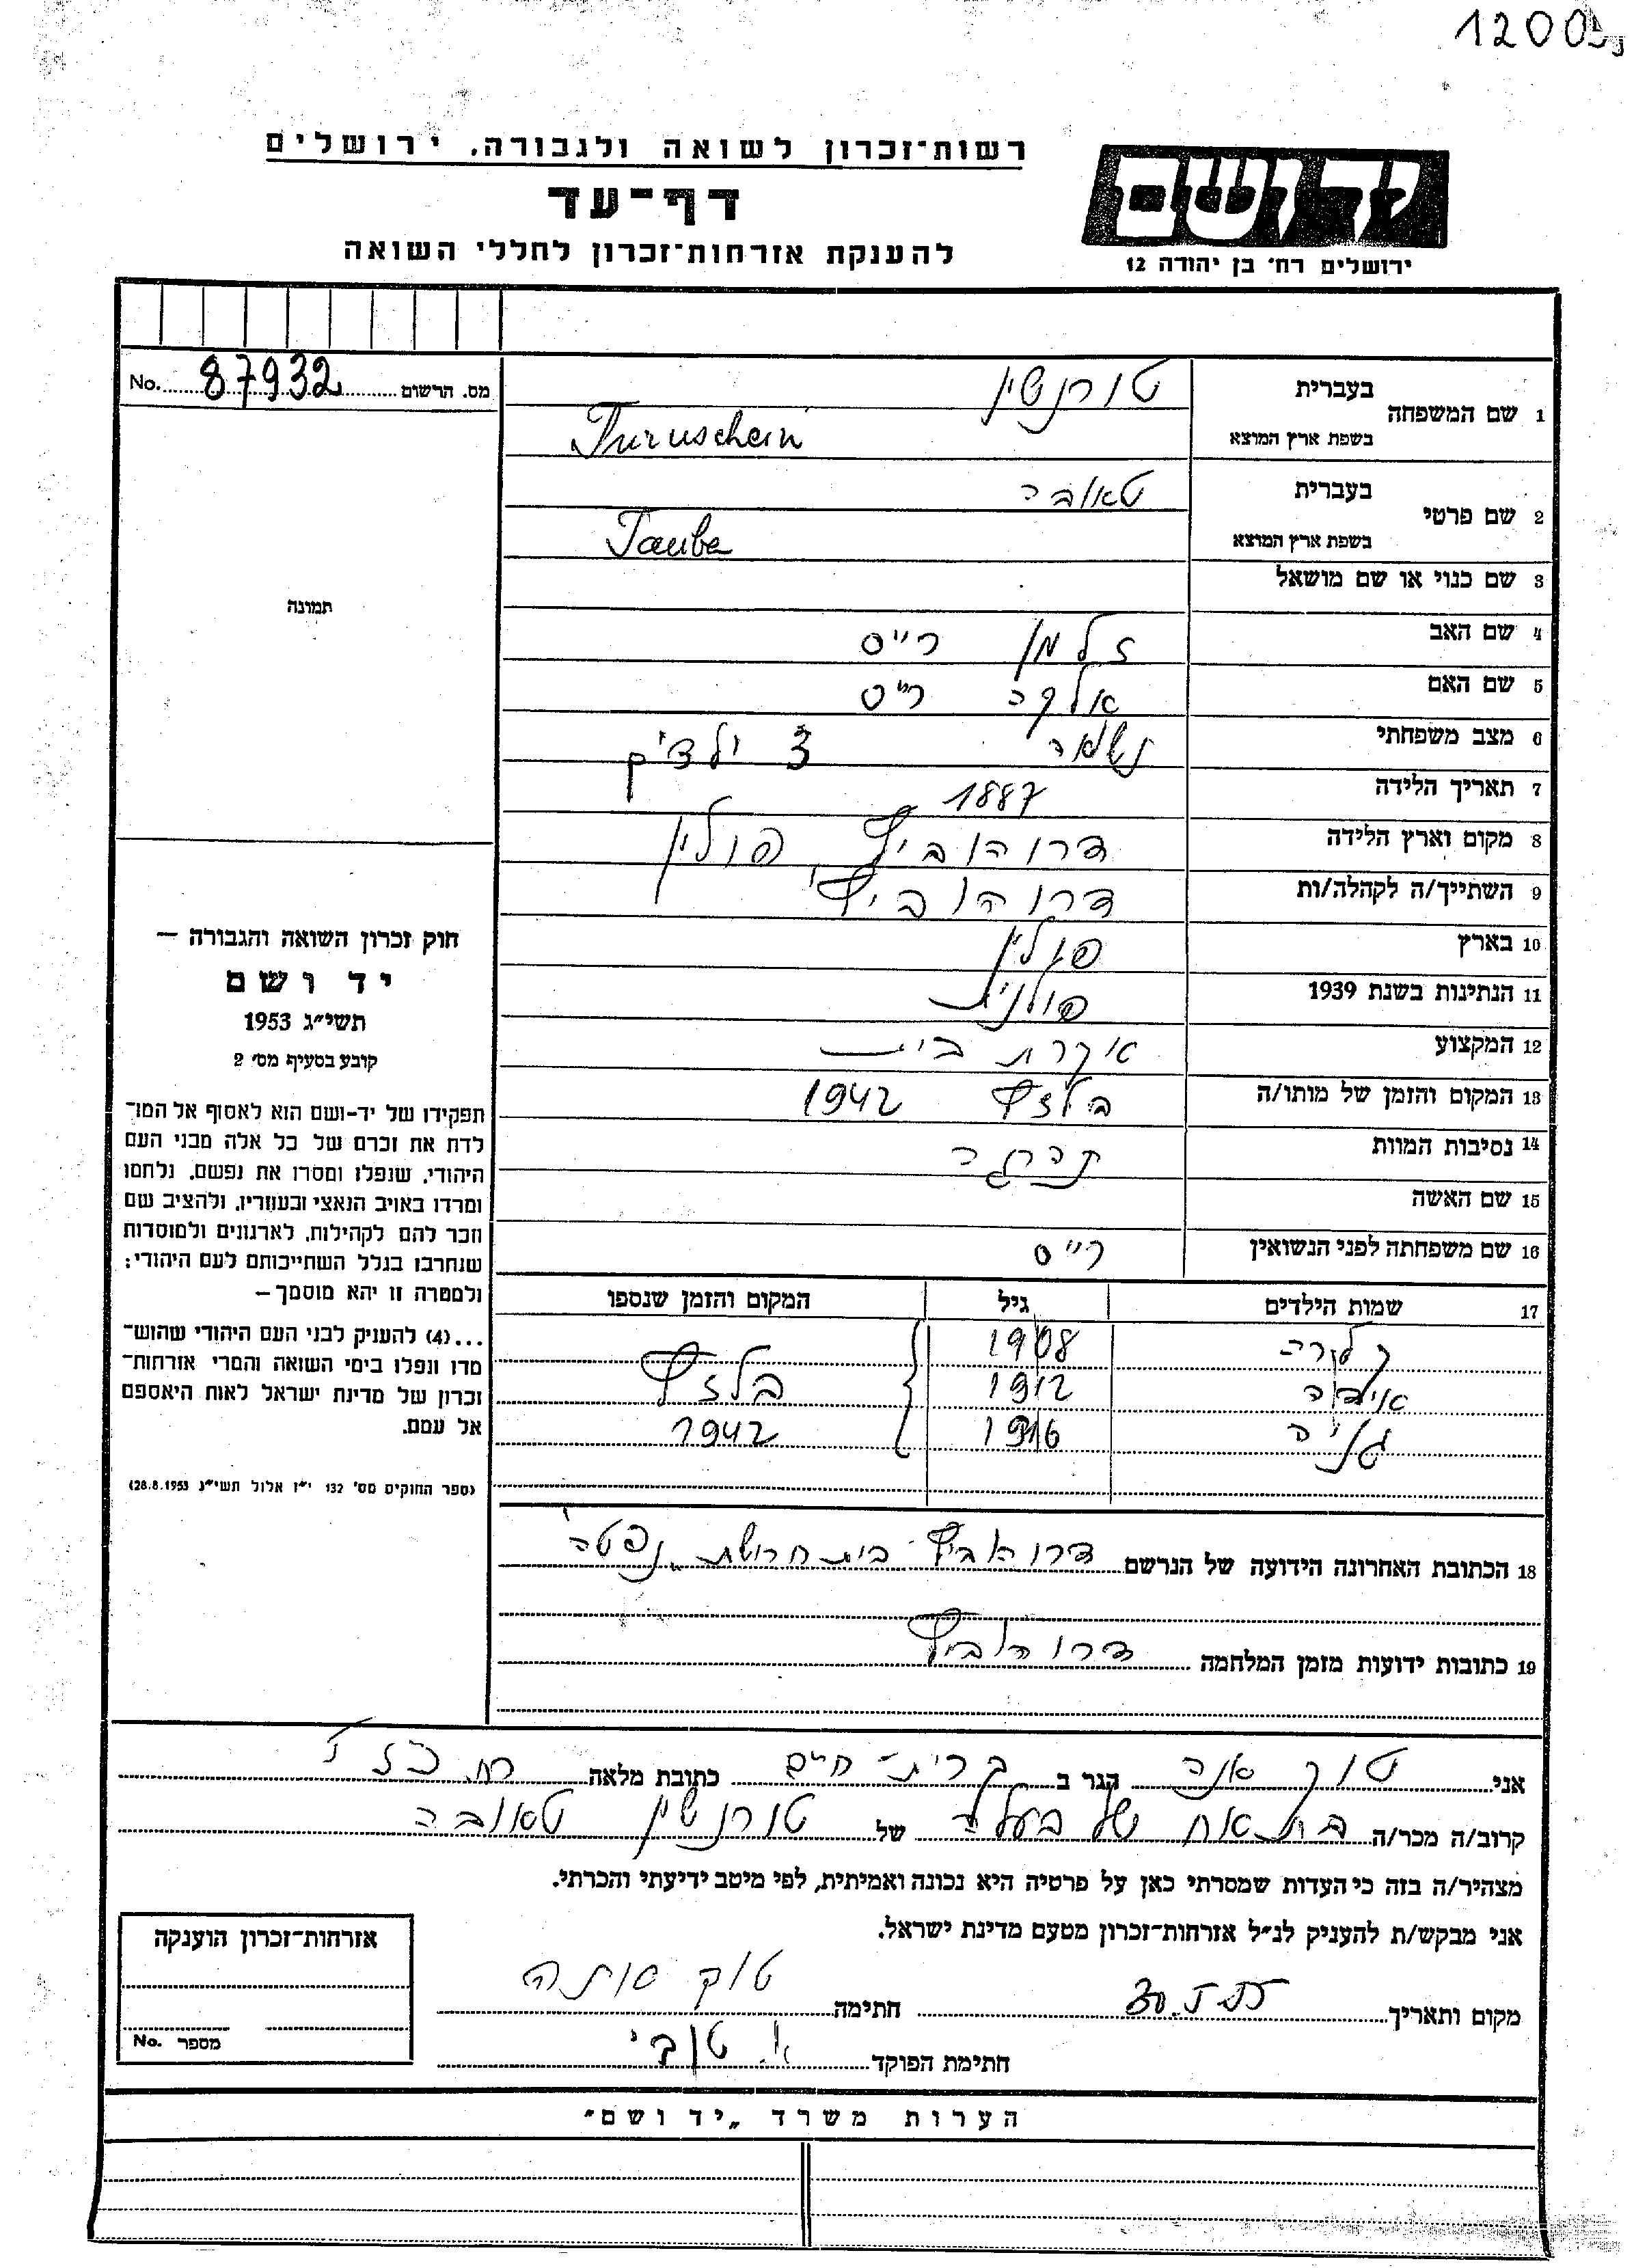 1200
רשות־זכרון לשואה ולגבורה, ירושלים
דף־עד
להענקת אזרחות־זכרון לחללי השואה
ידושם
ירושלים רח׳ בן יהודה 12
No. 87932 מס. הרשום
תמונה
1 שם המשפחה בעברית טורנשין
בשפת ארץ המוצא Turnschein
2 שם פרטי בעברית טאובה
בשפת ארץ המוצא Taube
3 שם כנוי או שם מושאל
4 שם האב זלמן רייס
5 שם האם אלקה רייס
6 מצב משפחתי נשואה 3 ילדים
7 תאריך הלידה 1887
8 מקום וארץ הלידה דרוהוביץ, פולין
9 השתייך/ה לקהלה/ות דרוהוביץ
10 בארץ פולין
11 הנתינות בשנת 1939 פולנית
12 המקצוע עקרת בית
13 המקום והזמן של מותו/ה בלזץ 1942
14 נסיבות המוות נהרגה
15 שם האשה
16 שם משפחתה לפני הנשואין רייס
17 שמות הילדים גיל המקום והזמן שנספו
קלרה 1908
1912 בלזץ
1916 1942
18 הכתובת האחרונה הידועה של הנרשם דרוהוביץ בית חרושת "נפטה"
19 כתובות ידועות מזמן המלחמה דרוהוביץ
חוק זכרון השואה והגבורה —
יד ושם
תשי״ג 1953
קובע בסעיף מס׳ 2
תפקידו של יד-ושם הוא לאסוף אל המו־
לדת את זכרם של כל אלה מבני העם
היהודי, שנפלו ומסרו את נפשם, נלחמו
ומרדו באויב הנאצי ובעוזריו, ולהציב שם
וזכר להם לקהילות, לארגונים ולמוסדות
שנחרבו בגלל השתייכותם לעם היהודי;
ולמטרה זו יהא מוסמך —
...(4) להעניק לבני העם היהודי שהוש־
מדו ונפלו בימי השואה והמרי אזרחות־
זכרון של מדינת ישראל לאות היאספם
אל עמם.
(ספר החוקים מס׳ 132 י״ז אלול תשי״ג 28.8.1953)
אני טוק אנה הגר ב קרית-חיים כתובת מלאה רח.
קרוב/ה מכר/ה בת אח של בעלה של טורנשין טאובה
מצהיר/ה בזה כי העדות שמסרתי כאן על פרטיה היא נכונה ואמיתית, לפי מיטב ידיעתי והכרתי.
אני מבקש/ת להעניק לנ״ל אזרחות־זכרון מטעם מדינת ישראל.
מקום ותאריך חתימה טוק אנה
חתימת הפוקד
אזרחות־זכרון הוענקה
מספר No.
הערות משרד „יד ושם״